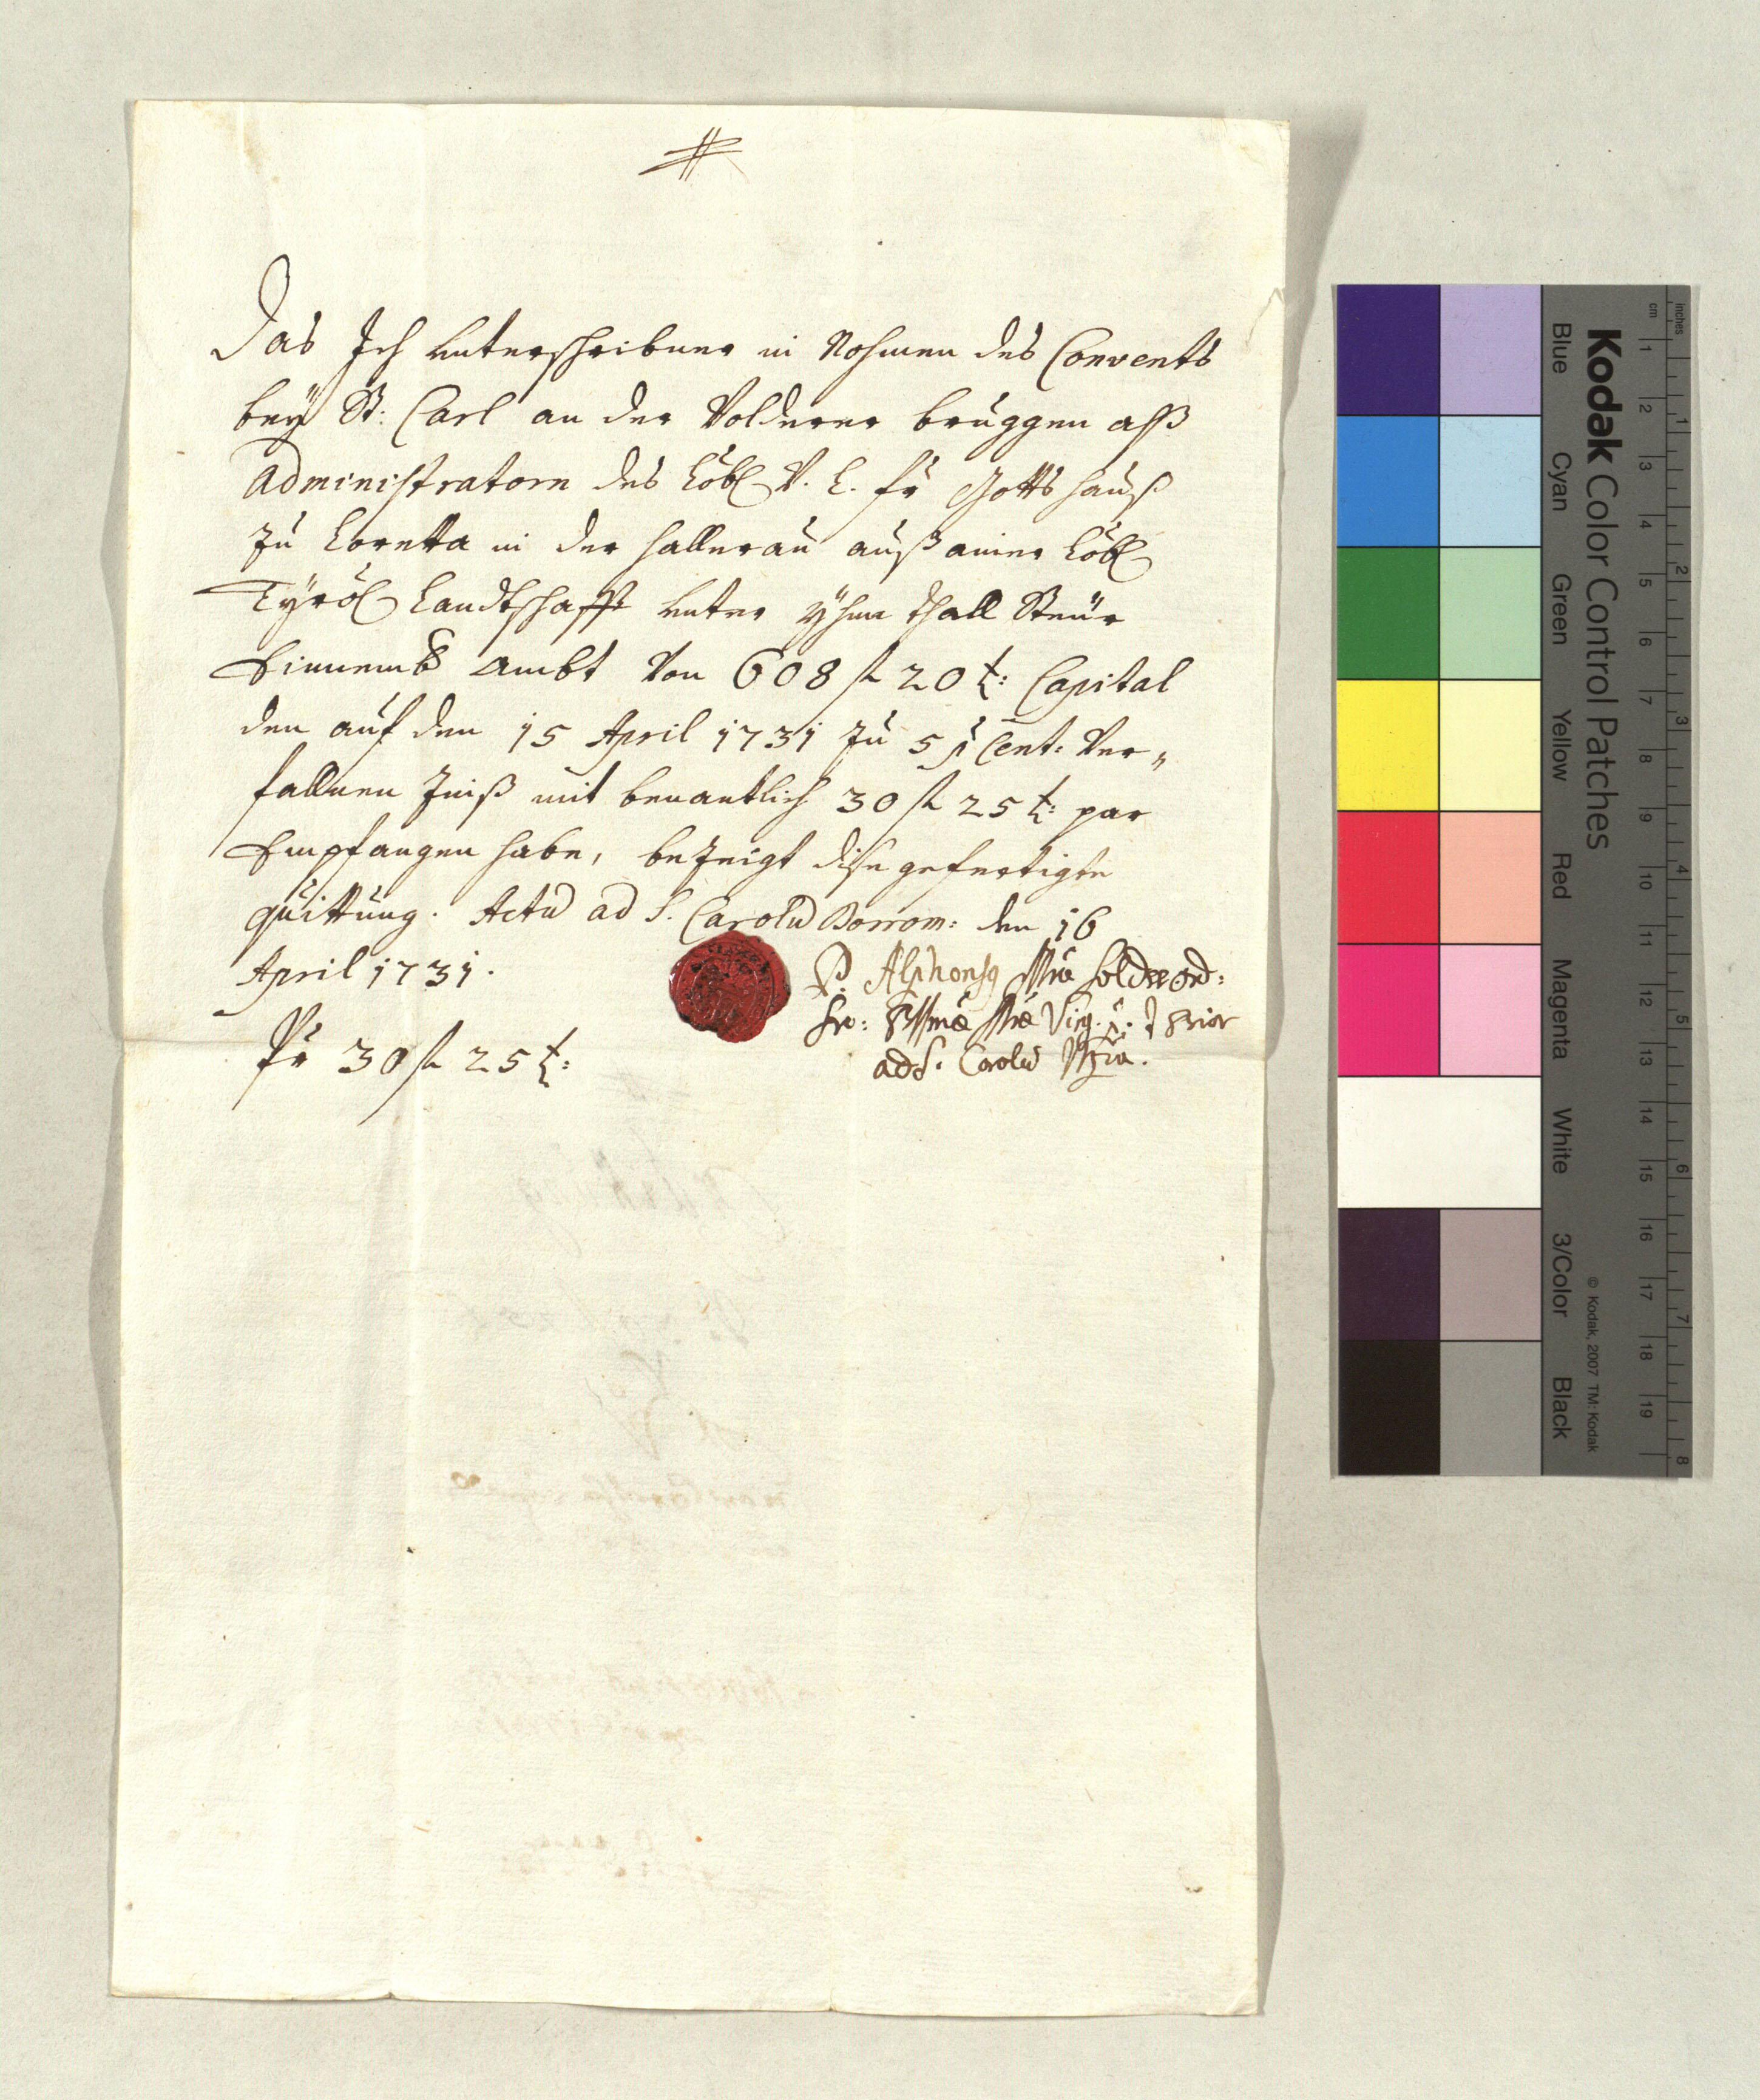 #
Das Ich Unterschribner in Nahmen des Convents
bey St: Carl an der Volderer bruggen alß
Administratorn des Löbl V. L. fr Gottshauß
zu Loretta in der Hallerau auß ainer Löbl
Tyrol Landtschafft Unter yhnthall Steür
Einnemb Ambt Von 608 fl 20 x: Capital
den auf den 15 April 1731 zu 5 p Cent: Ver„
fallnen Zinß mit benantlich 30 fl 25 x: par
Empfangen habe, bezeigt dise gefertigte
quittung. Actu ad S. Carolu Borrom: den 16
April 1731.
P. Alphonsq ord:
Ser: Virg. Prior
ad S. Carolu
fr 30 fl 25 x:
Kodak Color Control Patches
Blue Cyan Green Yellow Red Magenta White 3/Color Black
© Kodak, 2007 TM: Kodak
inches 1 2 3 4 5 6 7 8
cm 1 2 3 4 5 6 7 8 9 10 11 12 13 14 15 16 17 18 19